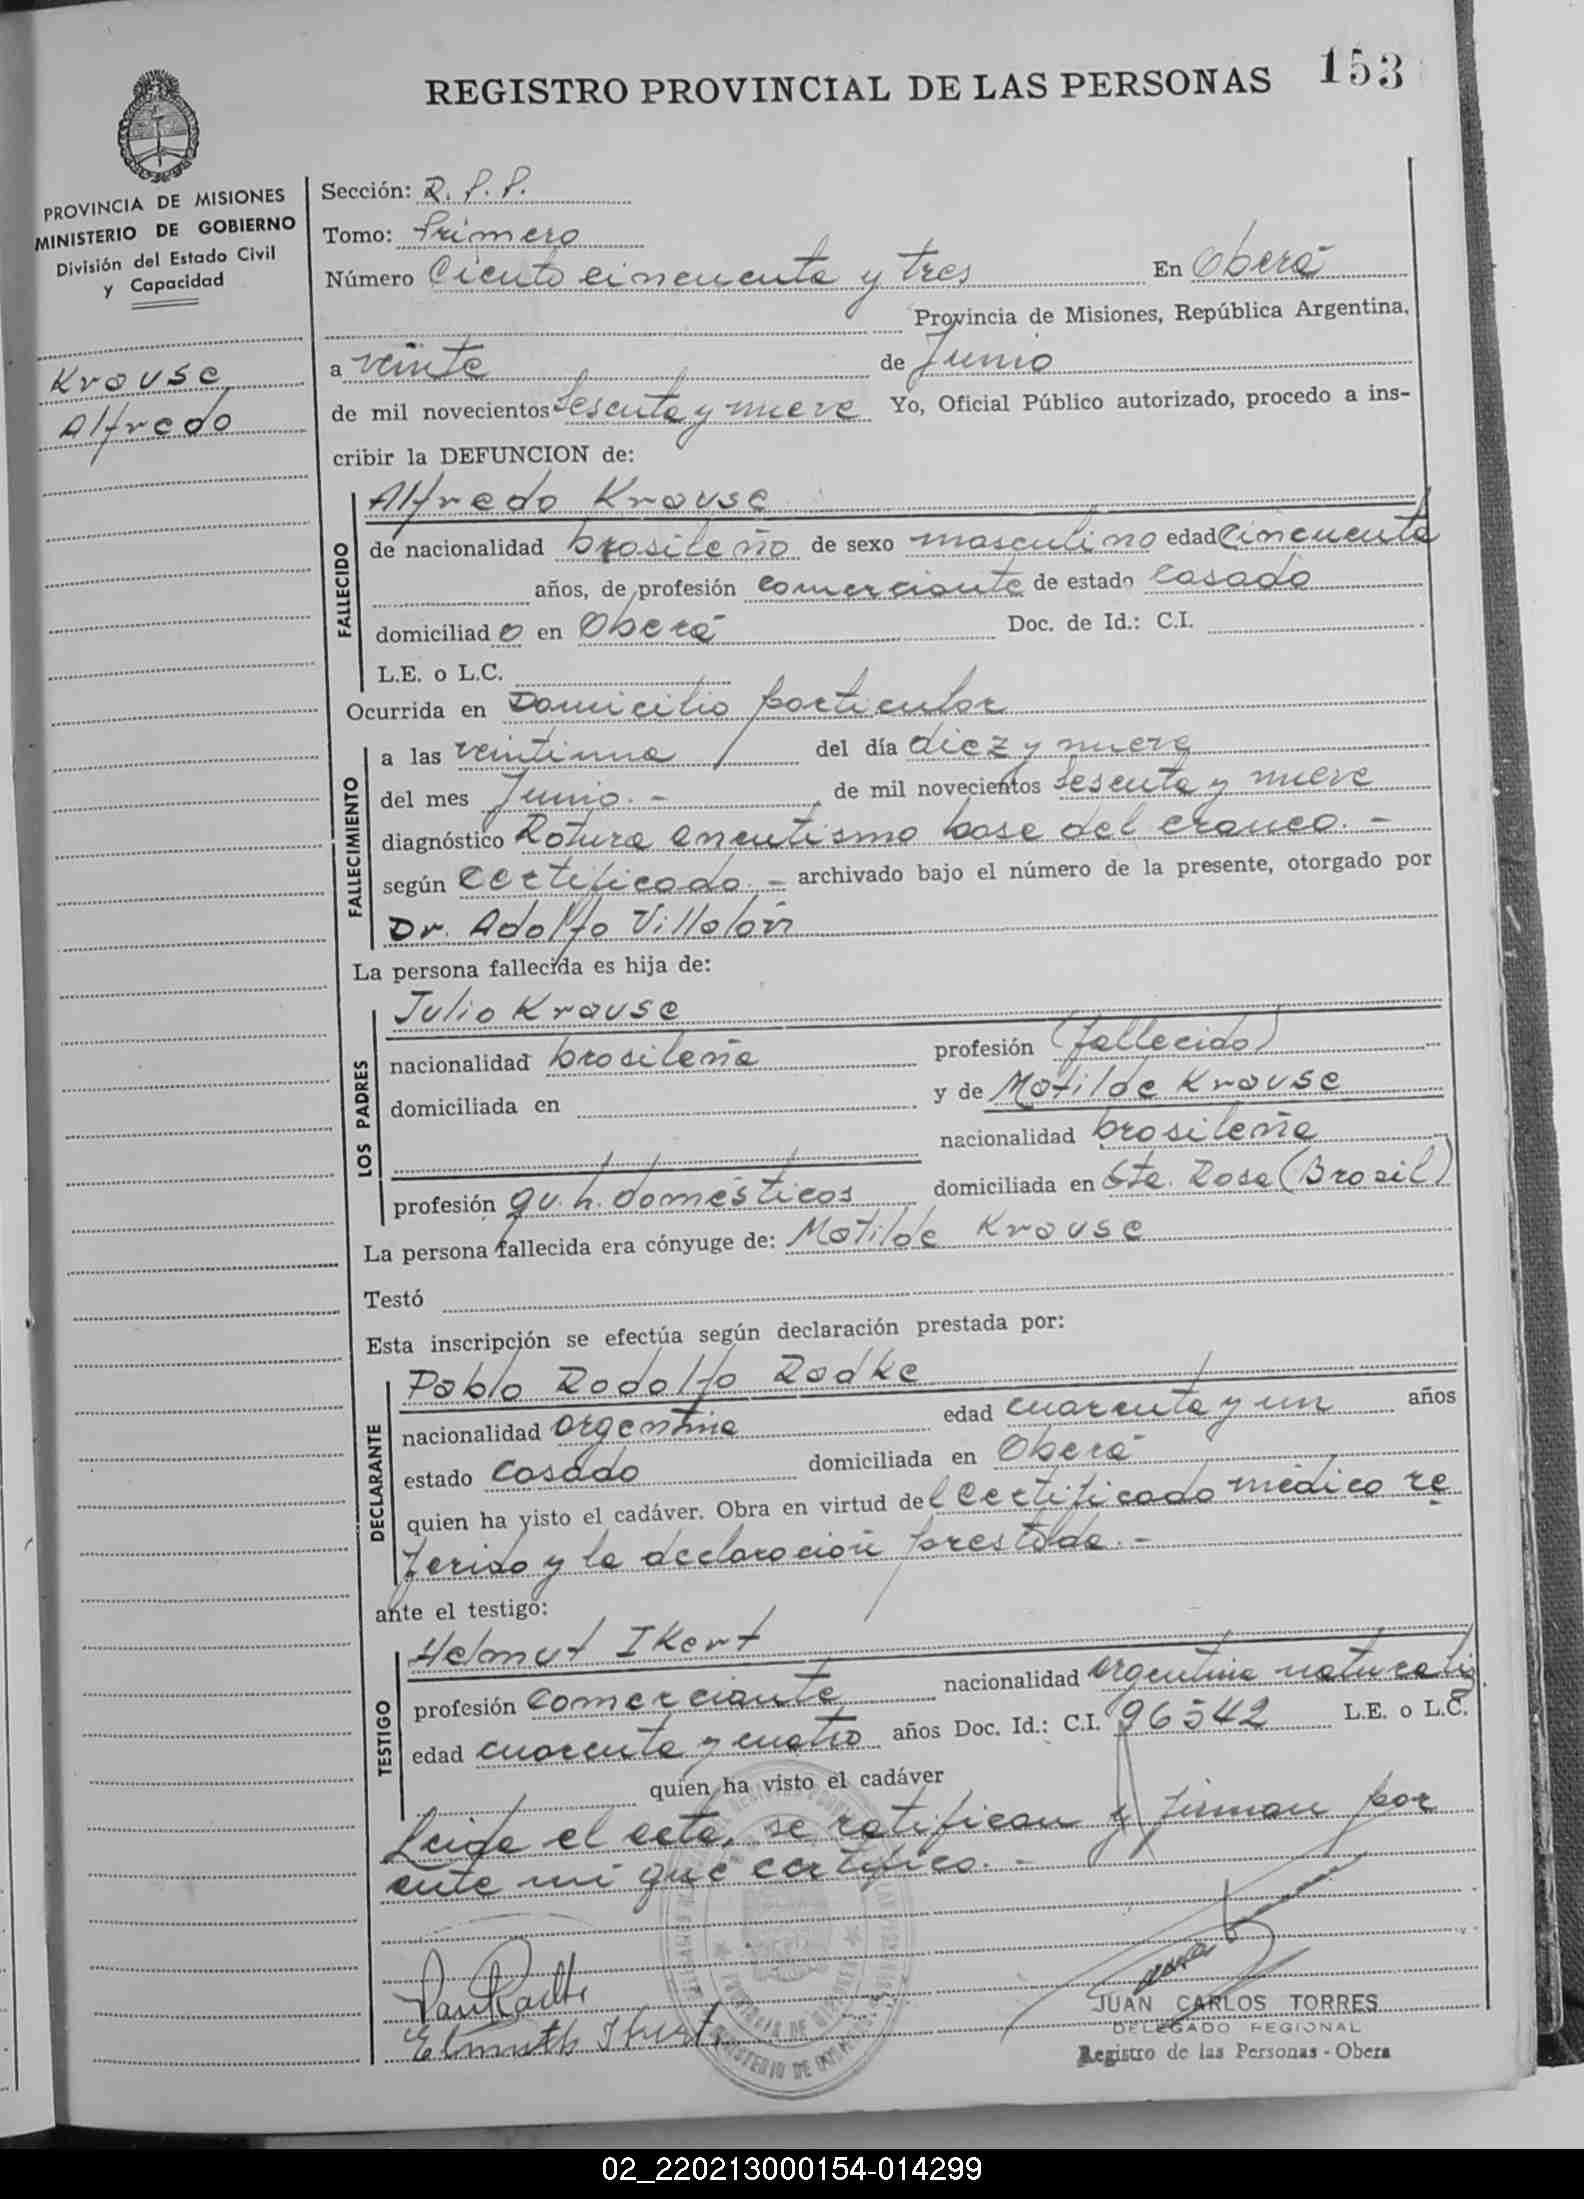 REGISTRO PROVINCIAL DE LAS PERSONAS 153
PROVINCIA DE MISIONES
MINISTERIO DE GOBIERNO
División del Estado Civil
y Capacidad
Krause
Alfredo
Sección: R. P. P.
Tomo: Primero
Número Ciento cincuenta y tres En Oberá
Provincia de Misiones, República Argentina,
a veinte de Junio
de mil novecientos Sesenta y nueve Yo, Oficial Público autorizado, procedo a ins-
cribir la DEFUNCION de:
FALLECIDO
Alfredo Krause
de nacionalidad brasileño de sexo masculino edad Cincuenta
años, de profesión comerciante de estado casado
domiciliado en Oberá Doc. de Id.: C.I.
L.E. o L.C.
Ocurrida en Domicilio particular
FALLECIMIENTO
a las veintiuna del día diez y nueve
del mes Junio.- de mil novecientos Sesenta y nueve
diagnóstico Rotura aneutismo base del craneo.-
según Certificado.- archivado bajo el número de la presente, otorgado por
Dr. Adolfo Villalón
La persona fallecida es hija de:
LOS PADRES
Julio Krause
nacionalidad brasileña profesión (fallecido)
domiciliada en y de Matilde Krause
nacionalidad brasileña
profesión qu. h. domésticos domiciliada en Sta. Rosa (Brasil)
La persona fallecida era cónyuge de: Matilde Krause
Testó
Esta inscripción se efectúa según declaración prestada por:
DECLARANTE
Pablo Rodolfo Radke
nacionalidad argentina edad cuarenta y un años
estado casado domiciliada en Oberá
quien ha visto el cadáver. Obra en virtud del Certificado médico re
ferido y la declaración prestada.-
ante el testigo:
TESTIGO
Helmut Ikert
profesión Comerciante nacionalidad argentina naturaliz.
edad cuarenta y cuatro años Doc. Id.: C.I. 96542 L.E. o L.C.
quien ha visto el cadáver
Leida el acta, se ratifican y firman por
ante mi que certifico.-
JUAN CARLOS TORRES
DELEGADO REGIONAL
Registro de las Personas - Obera
02_220213000154-014299